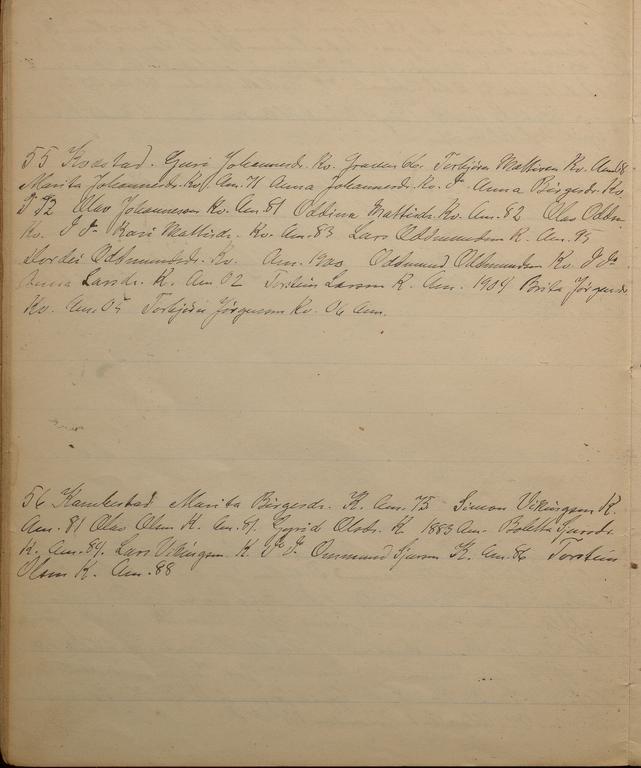 55 Kvestad. Guri Johannesdr. Kv. Graven do. Torbjörn Mattisen Kv. Am. 68
Marita Johannesdr. Kv. Am. 71 Anna Johannesdr. Kv. do. Anna Börgesdr. Kv.
72 Olav Johannesen Kv. Am. 81 Oddina Mattisdr. Kv. Am. 82 Olav Oddm.
Kv. Kari Mattisdr. Kv. Am. 83 Lars Oddmundsen K. Am. 95
Oddmundsdr. Kv. Am. 1900 Oddmund Oddmundsen Kv.
Anna Larsdr. K. Am 02 Torstein Larsen K. Am. 1904 Brita Jörgensdr
Kv. Am. 05 Torbjörn Jörgensen Kv. 06 Am.
56 Kambestad Marita Börgesdr. K. Am. 75 Simon Vikingsen K.
Am. 81 Olav Olsen K. Am. 81. Gyrid Olsdr. K 1883 Am. Bolette Sjursdr.
K. Am. 84. Lars Vikingsen K. Osmund Sjursen K. Am. 86 Torstein
Olsen K. Am. 88